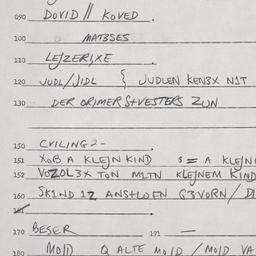 090 DOVID // KOVED
100 MATBSES
110 LEJZERIXE
120 JUDL/JIDL { JUDLEN KEN3X N1T
130 DER ORIMER S+VESTERS ZUN
150 CVILING2-
151 XOB A KLEJN KIND S = A KLEJN
152 VOZOL3X TON MITN KLEJNEM KIND
160 IZ G3VORN /
170 BESER 171 —
180 MOJD Q ALTE MOJD / MOJD VA